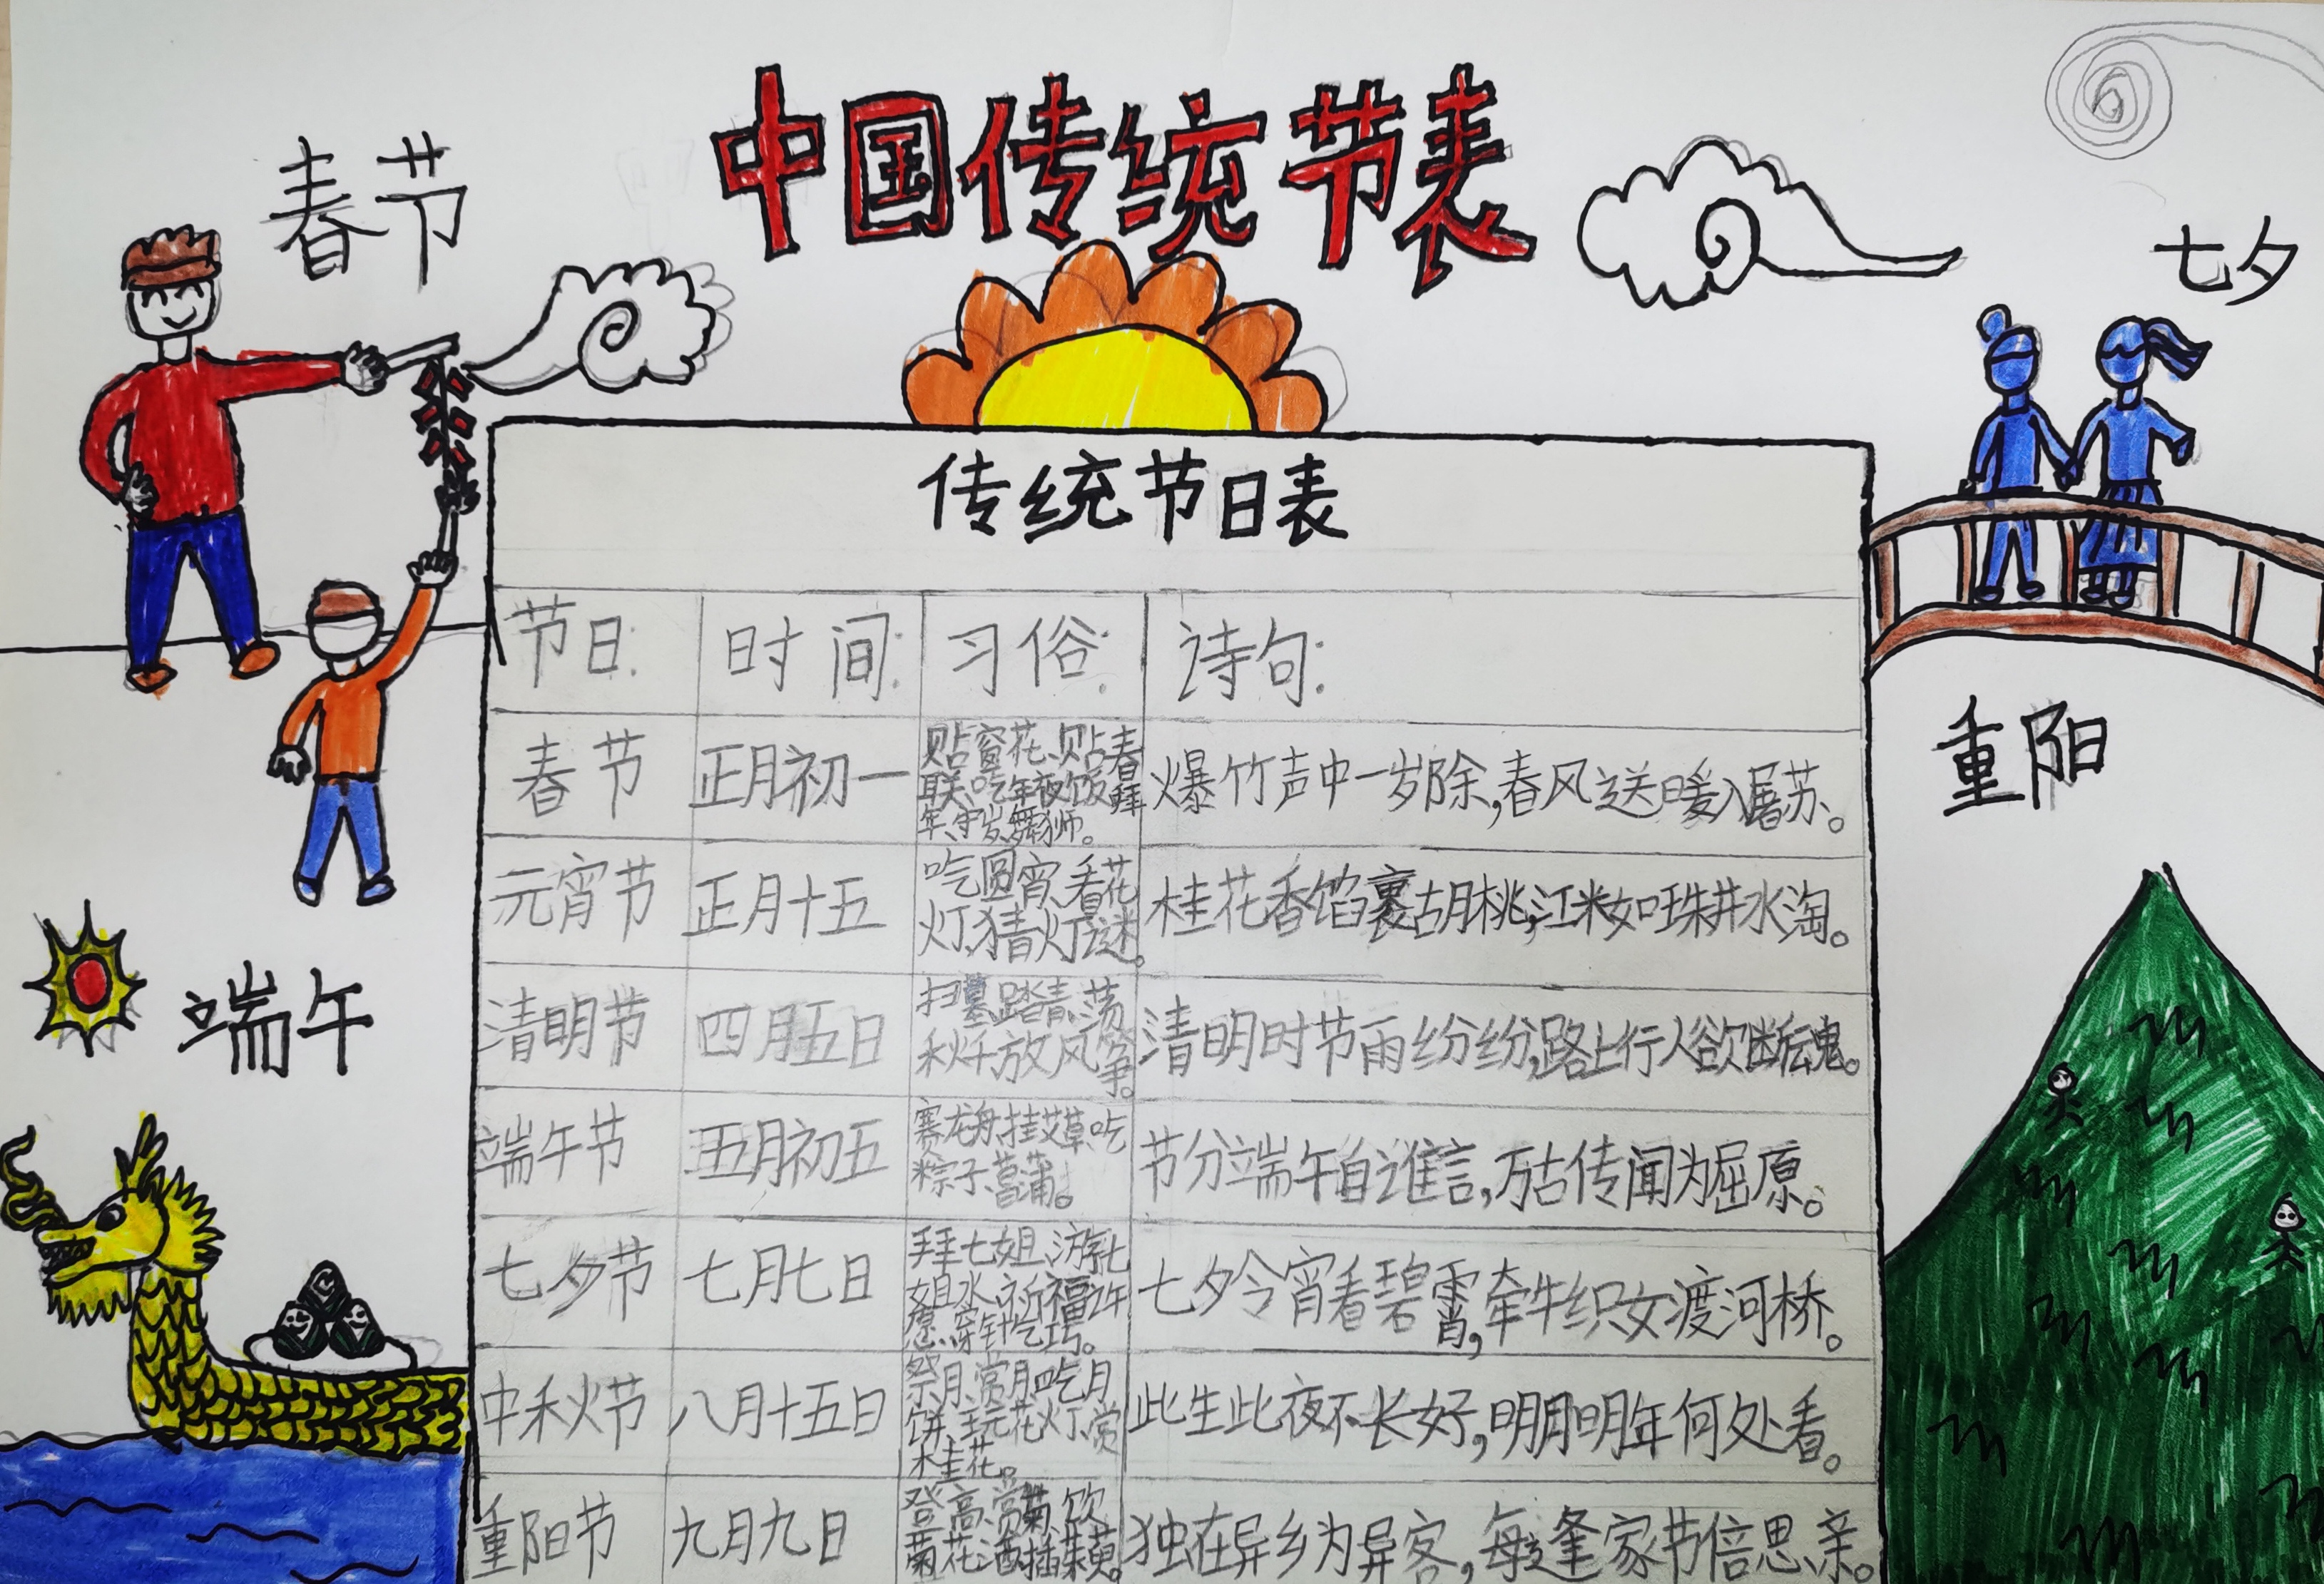 中国传统节表
春节
七夕
传统节日表
节日: 时间: 习俗: 诗句:
春节 正月初一 贴窗花、贴春
联、吃年夜饭、拜
年、守岁、舞狮。
爆竹声中一岁除,春风送暖入屠苏。
元宵节 正月十五 吃圆宵、看花
灯、猜灯谜。
桂花香馅裹胡桃,江米如珠井水淘。
清明节 四月五日 扫墓、踏青、荡
秋千、放风筝。
清明时节雨纷纷,路上行人欲断魂。
端午节 五月初五 赛龙舟、挂艾草、吃
粽子、菖蒲。
节分端午自谁言,万古传闻为屈原。
七夕节 七月七日 拜七姐、游七
姐水、祈福许
愿、穿针乞巧。
七夕今宵看碧霄,牵牛织女渡河桥。
中秋节 八月十五日 祭月、赏月、吃月
饼、玩花灯、赏
桂花。
此生此夜不长好,明月明年何处看。
重阳节 九月九日 登高、赏菊、饮
菊花酒、插茱萸。
独在异乡为异客,每逢家节倍思亲。
端午
重阳